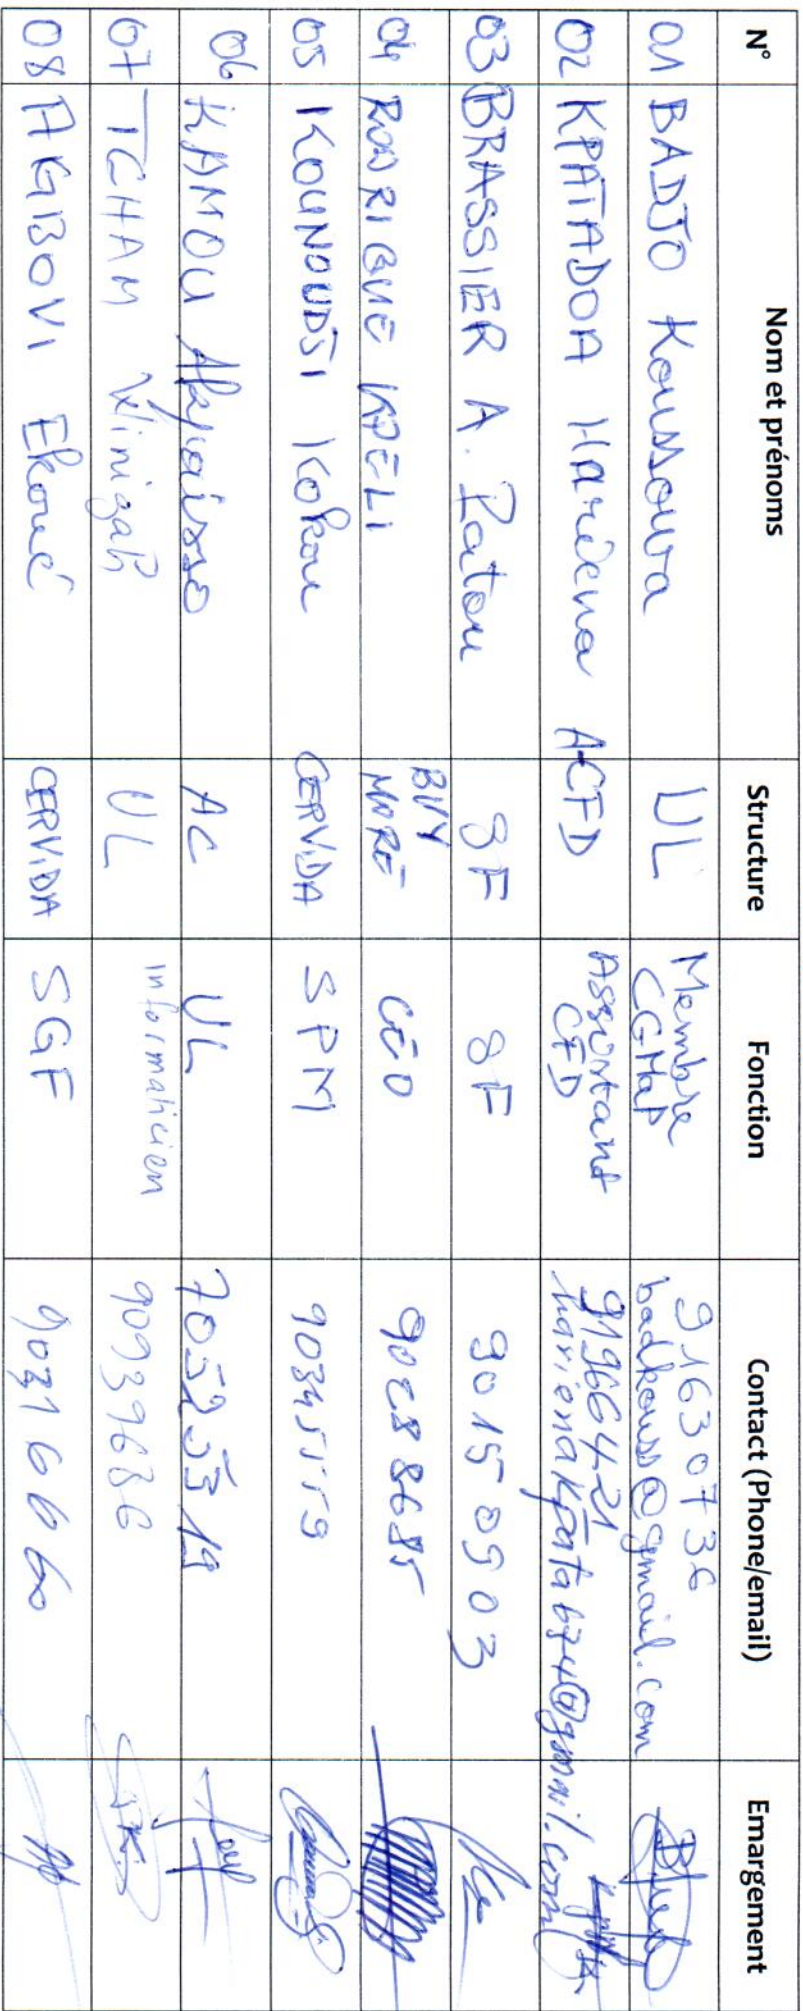 N° Nom et prénoms Structure Fonction Contact (Phone/email) Emargement
01 BADJO Koussowa UL Membre CGMaP 91630736 badkouss@gmail.com
02 KPATADOA Hariéna ACFD Assistant CFD 91966421 harienakpata674@gmail.com
03 BRASSIER A. Patou SF SF 90150903
04 RODRIGUE KPELI BUY MORE CEO 90288685
05 KOUNOUDJI Kokou CERVIDA SPM 90345559
06 KAMOU Akpaïsso AC UL 70525319
07 TCHAM Winigah UL informaticien 90939636
08 AGBOVI Ekoué CERVIDA SGF 90316060